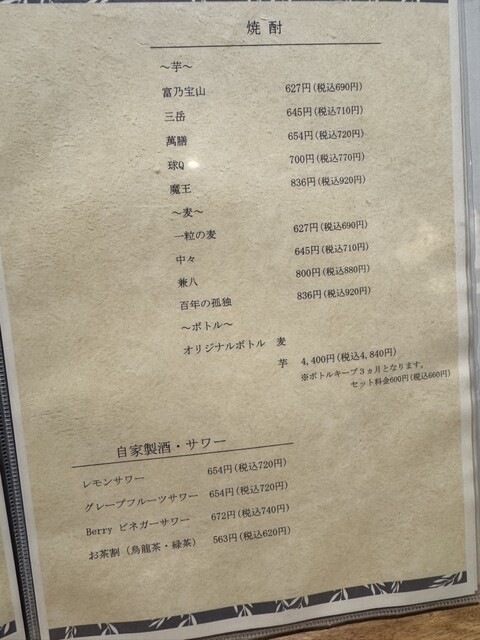 焼酎
～芋～
富乃宝山 627円(税込690円)
三岳 645円(税込710円)
萬膳 654円(税込720円)
球Q 700円(税込770円)
魔王 836円(税込920円)
～麦～
一粒の麦 627円(税込690円)
中々 645円(税込710円)
兼八 800円(税込880円)
百年の孤独 836円(税込920円)
～ボトル～
オリジナルボトル 麦
芋 4,400円(税込4,840円)
※ボトルキープ3ヵ月となります。
セット料金600円(税込660円)
自家製酒・サワー
レモンサワー 654円(税込720円)
グレープフルーツサワー 654円(税込720円)
Berry ビネガーサワー 672円(税込740円)
お茶割（烏龍茶・緑茶） 563円(税込620円)